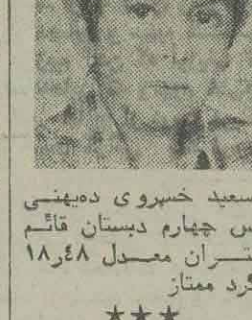 سعید خسروی ده‌یهنی
س چهارم دبستان قائم
تهران معدل ۱۸ر۴۸
گرد ممتاز
★★★